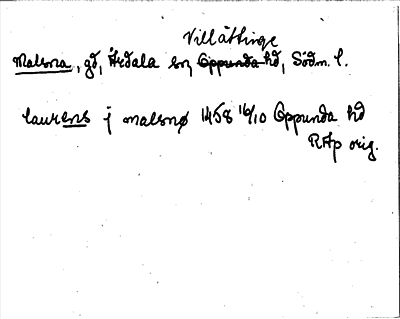 Villåttinge
Malsna, gd, Årdala sn, Oppunda hd, Södm. l.
laurens j malsnø 1458 16/10 Oppunda hd
RAp orig.